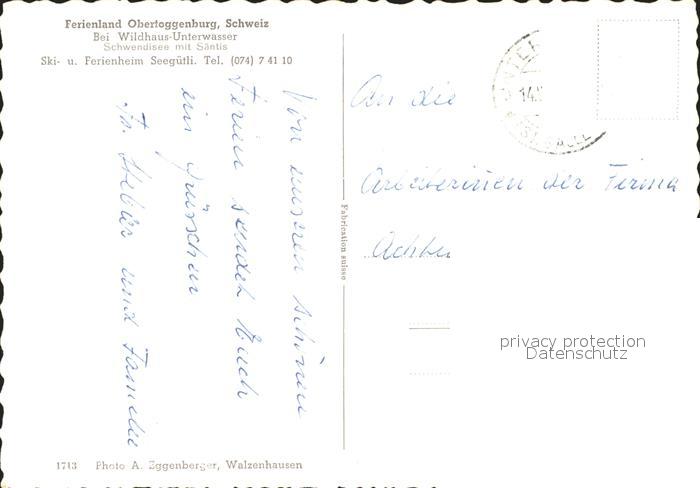 Ferienland Obertoggenburg, Schweiz
Bei Wildhaus-Unterwasser
Schwendisee mit Säntis
Ski- u. Ferienheim Seegütli. Tel. (074) 7 41 10
Von unseren schönen
Ferien sendet Euch
ein Grüsschen
und Familie
An die
Arbeiterinnen der Firma
Fabrication suisse
privacy protection
Datenschutz
1713 Photo A. Eggenberger, Walzenhausen